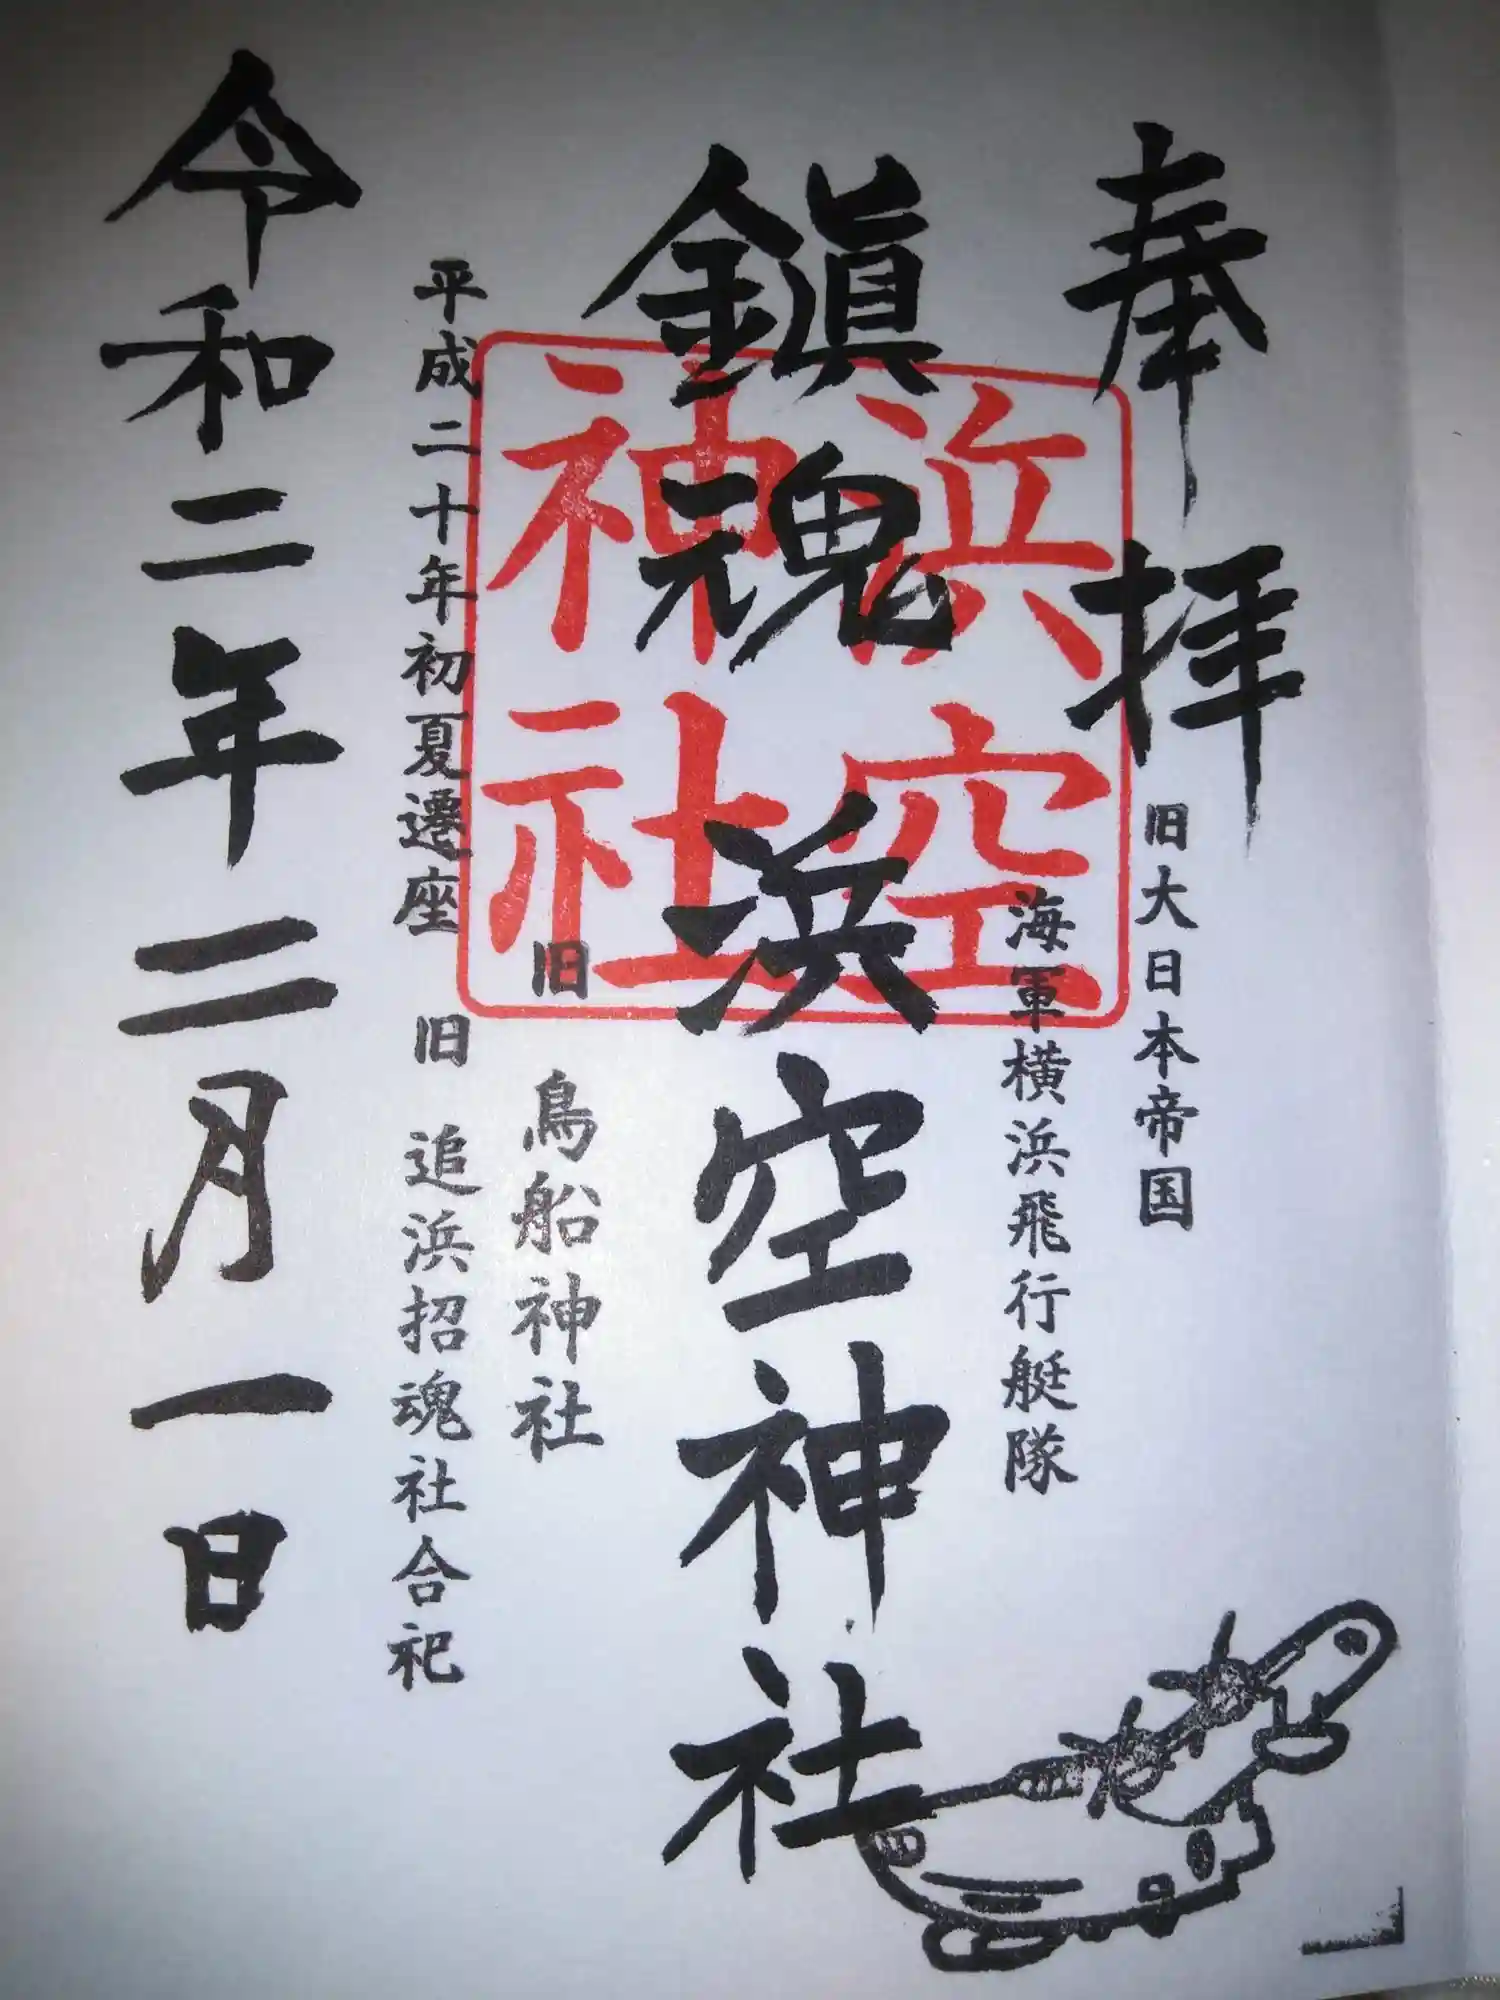 奉拝
旧大日本帝国
海軍横浜飛行艇隊
鎮魂 浜空神社
浜空
神社
旧 鳥船神社
平成二十年初夏遷座 旧 追浜招魂社合祀
令和二年二月一日